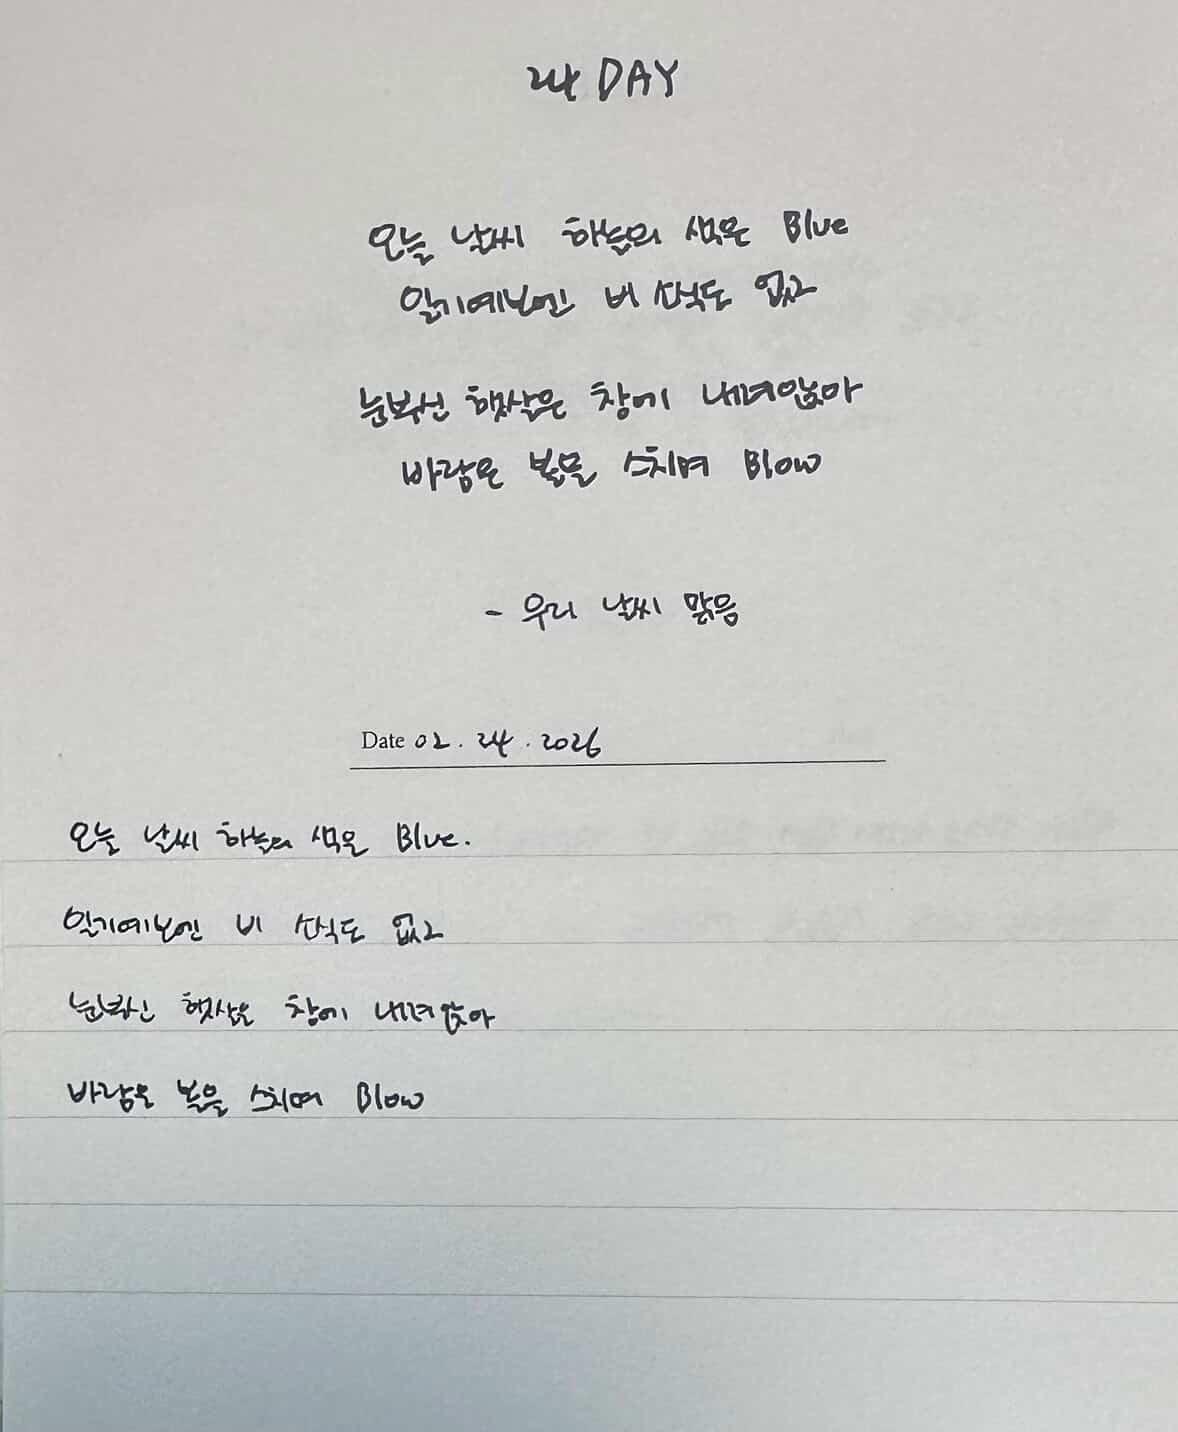 24 DAY
오늘 날씨 하늘의 색은 Blue
일기예보엔 비 소식도 없고
눈부신 햇살은 창에 내려앉아
바람은 볼을 스치며 Blow
- 우리 날씨 맑음
Date 02. 24. 2026
오늘 날씨 하늘의 색은 Blue.
일기예보엔 비 소식도 없고
눈부신 햇살은 창에 내려앉아
바람은 볼을 스치며 Blow